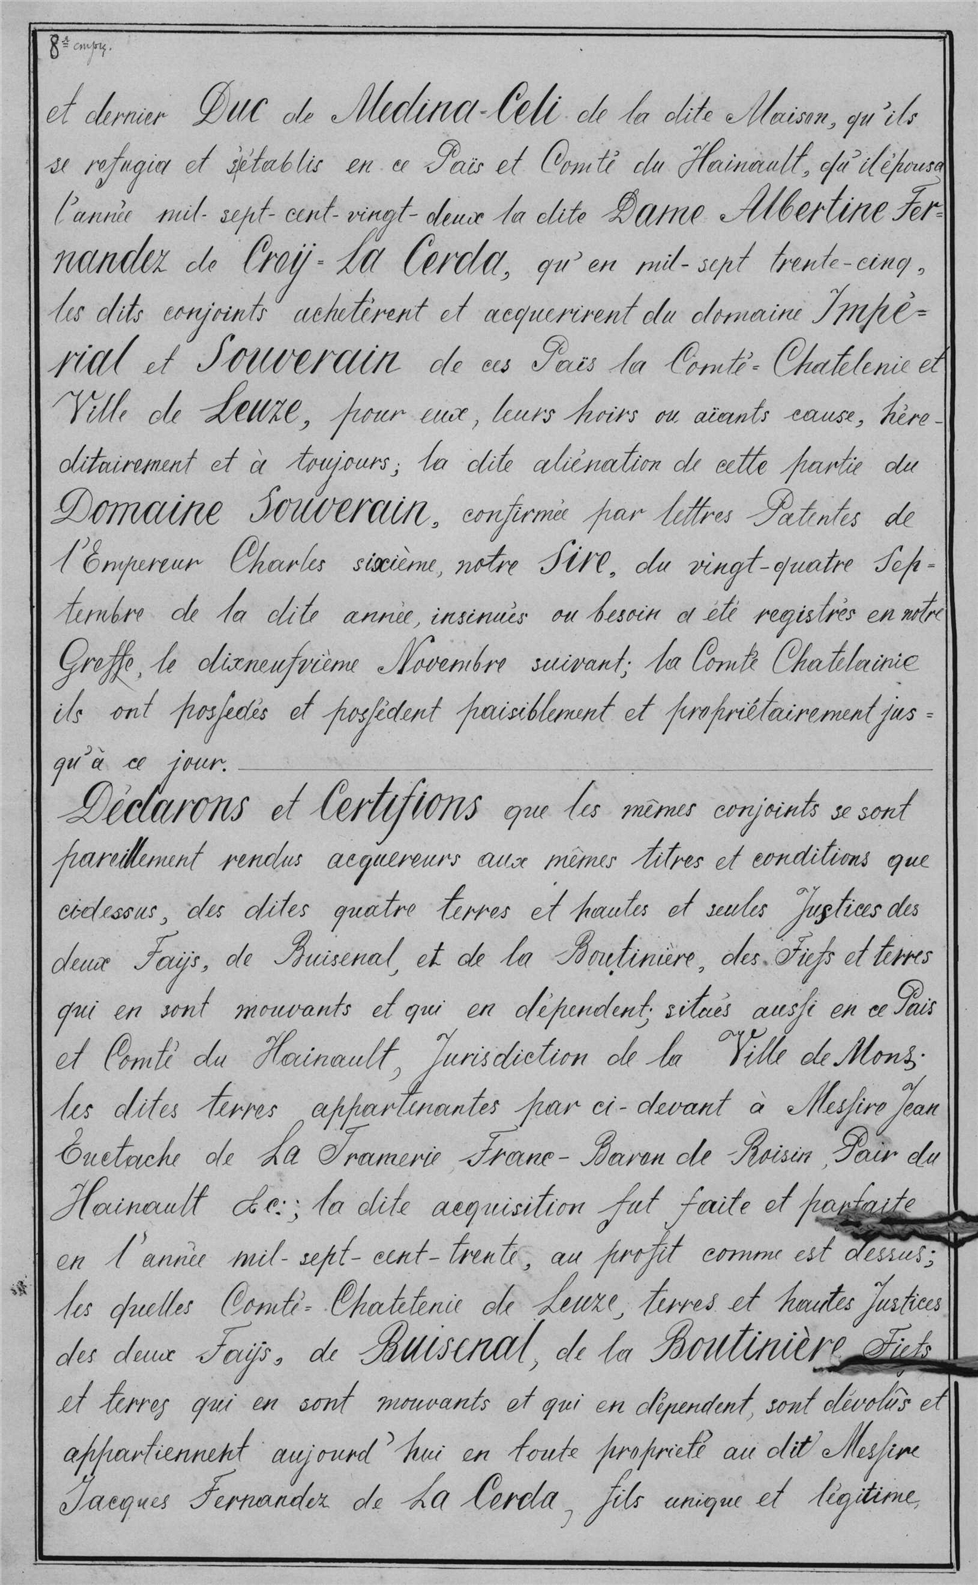 8e
et dernier Duc de Medina-Celi de la dite Maison, qu'ils
se refugia et s'établis en ce Païs et Comté du Hainault, qu'il épousa
l'année mil-sept-cent-vingt-deux la dite Dame Albertine Fer=
nandez de Croÿ-La Cerda, qu'en mil-sept trente-cinq,
les dits conjoints achetèrent et acquerirent du domaine Impé=
rial et Souverain de ces Païs la Comté=Chatelenie et
Ville de Leuze, pour eux, leurs hoirs ou aïants cause, hére-
ditairement et à toujours; la dite aliénation de cette partie du
Domaine Souverain, confirmée par lettres Patentes de
l'Empereur Charles sixième, notre Sire, du vingt-quatre Sep=
tembre de la dite année, insinués ou besoin a été registrés en notre
Greffe, le dixneufvième Novembre suivant; la Comté Chatelainie
ils ont possedés et possédent paisiblement et propriétairement jus=
qu'à ce jour.
Déclarons et Certifions que les mêmes conjoints se sont
pareillement rendus acquereurs aux mêmes titres et conditions que
cidessus, des dites quatre terres et hautes et seules Justices des
deux Faÿs, de Buisenal, et de la Boutinière, des Fiefs et terres
qui en sont mouvants et qui en dépendent; situés aussi en ce Païs
et Comté du Hainault, Jurisdiction de la Ville de Mons;
les dites terres appartenantes par ci-devant à Messire Jean
Euctache de La Tramerie Franc-Baron de Roisin, Pair du
Hainault &c:; la dite acquisition fut faite et parfaite
en l'année mil-sept-cent-trente, au profit comme est dessus;
les quelles Comté=Chatetenie de Leuze, terres et hautes Justices
des deux Faÿs, de Buisenal, de la Boutinière Fiefs
et terres qui en sont mouvants et qui en dépendent, sont dévolûs et
appartiennent aujourd'hui en toute proprieté au dit Messire
Jacques Fernandez de La Cerda, fils unique et légitime,